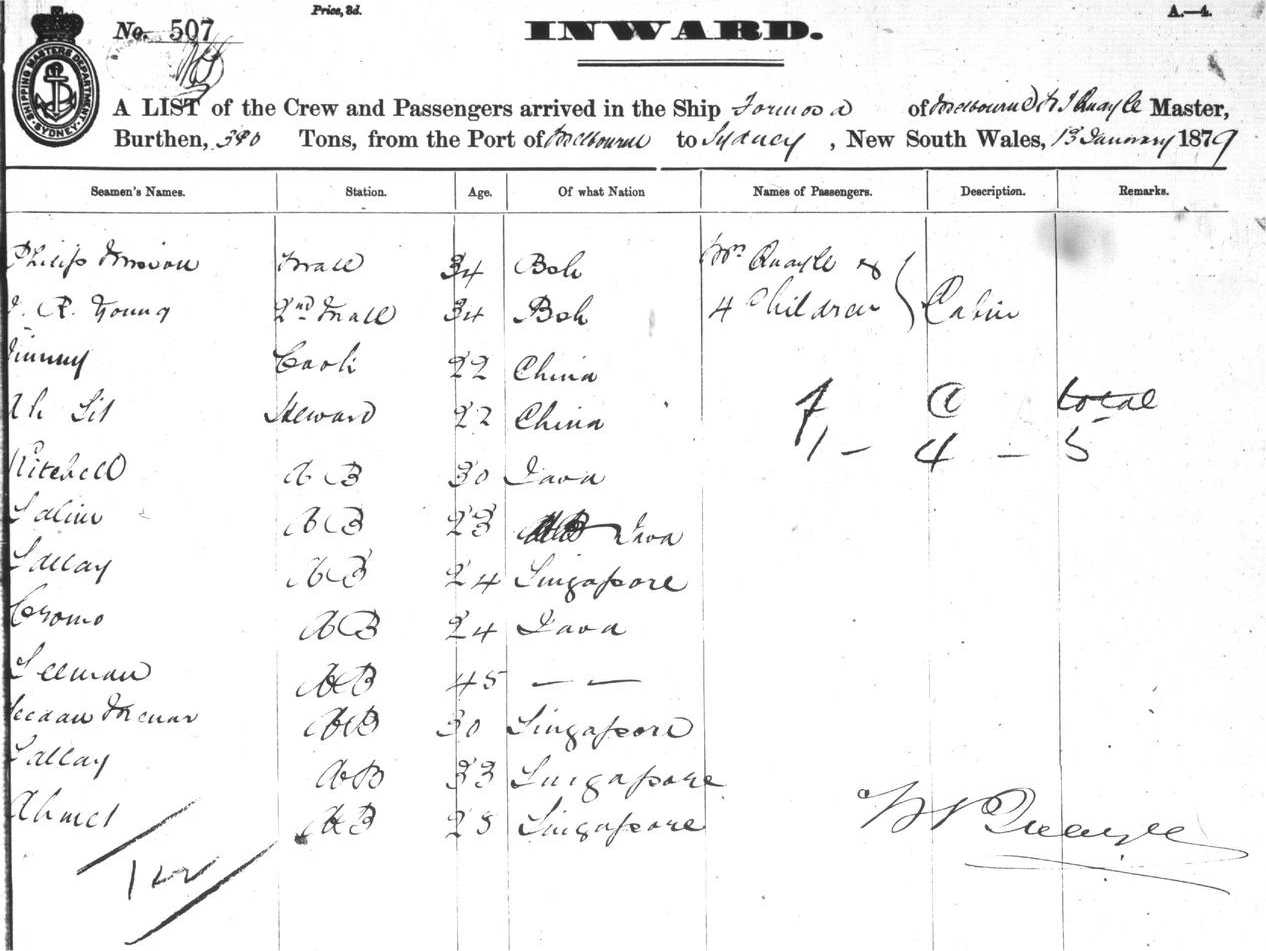 Price, 3d.
A.—4.
No. 507
INWARD.
SHIPPING MASTERS DEPARTMENT
SYDNEY
A LIST of the Crew and Passengers arrived in the Ship Formosa of Melbourne Quayle Master,
Burthen, 380 Tons, from the Port of Melbourne to Sydney, New South Wales, 13 January 1879
Seamen's Names. Station. Age. Of what Nation Names of Passengers. Description. Remarks.
Philip Mate 34 Bsh Mrs Quayle &
J. R. Young 2nd Mate 34 Bsh 4 Children Cabin
Jimmy Cook 22 China
Ah Sit Steward 22 China
a C total
1 – 4 – 5
Mitchell AB 30 Java
Salim AB 23 Java
Sallay AB 24 Singapore
Cromo AB 24 Java
Seeman AB 45 — —
AB 30 Singapore
Sallay AB 33 Singapore
Ahmet AB 25 Singapore
Quayle